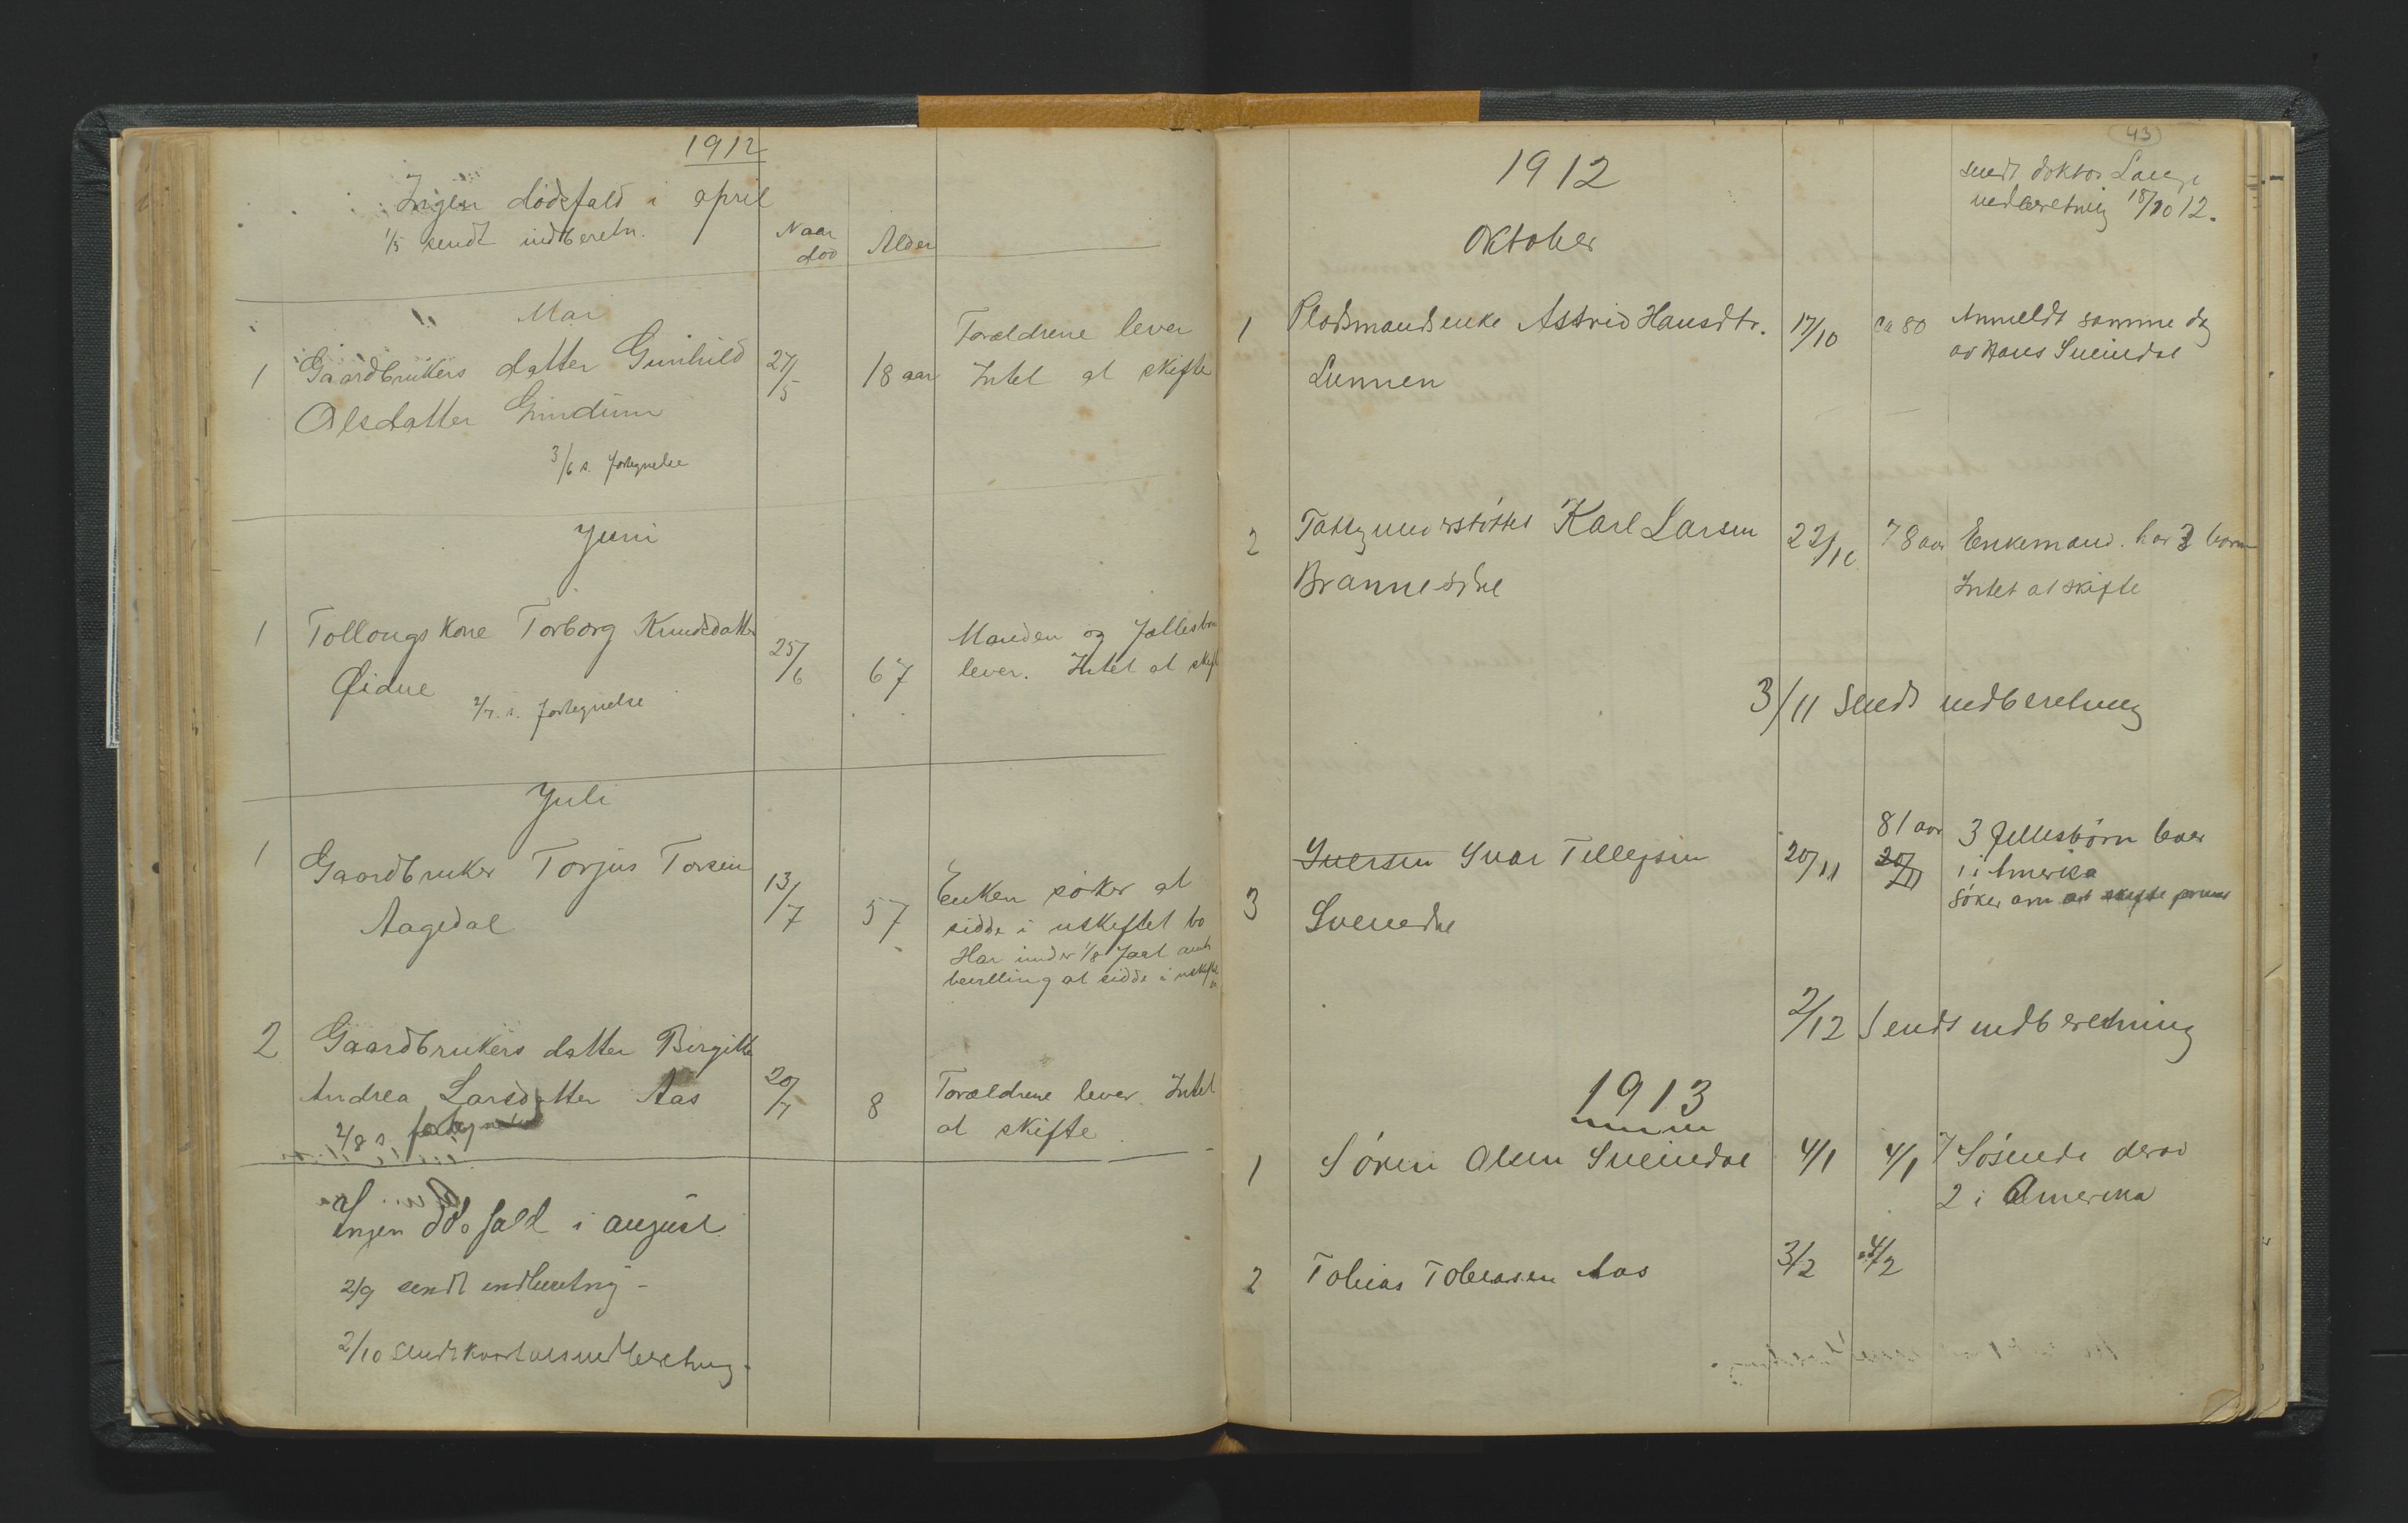 1912
Ingen dødsfald i april
1/5 sendt indberetn.
Naar død
Alder
Mai
1 Gaardbrukers datter Gunhild 27/5 18 aar Forældrene lever
Olsdatter Intet at skifte
3/6 s. fortegnelse
Juni
1 Tollougs kone Torborg Knudsdatter 25/6 67 Manden og fællesbørn
Øidne lever. Intet at skifte
2/7. s. fortegnelse
Juli
1 Gaardbruker Torjus Torsen 13/7 57 Enken søker at
Aagedal sidde i uskiftet bo
Har under 1/8 faat
bevilling at sidde i uskiftet
2 Gaardbrukers datter Birgitte 20/7 8 Forældrene lever. Intet
Andrea Larsdatter Aas at skifte
2/8 s. fortegnelse
Ingen dødsfald i august
2/9 sendt indberetning -
2/10 sendt kvartalsindberetning.
43
1912
sendt doktor Lange
indberetning 18/10 12.
Oktober
1 Pladsmandsenke Astrid Hansdtr. 17/10 ca 80 Anmeldt samme dag
Lunnen av Hans Sveindal
2 Fattigunderstøttet Karl Larsen 22/10 78 aar Enkemand. har 3 børn
Brannesdal Intet at skifte
3/11 sendt indberetning
3 Iversen Ivar Tellefsen 20/11 81 aar 20/11 3 fellesbørn lever
Sveindal 1 i Amerika
søker om at skifte privat
2/12 Sendt indberetning
1913
1 Søren Olsen Sveindal 4/1 4/1 7 Søsende derav
2 i Amerika
2 Tobias Tobiasen Aas 3/2 4/2